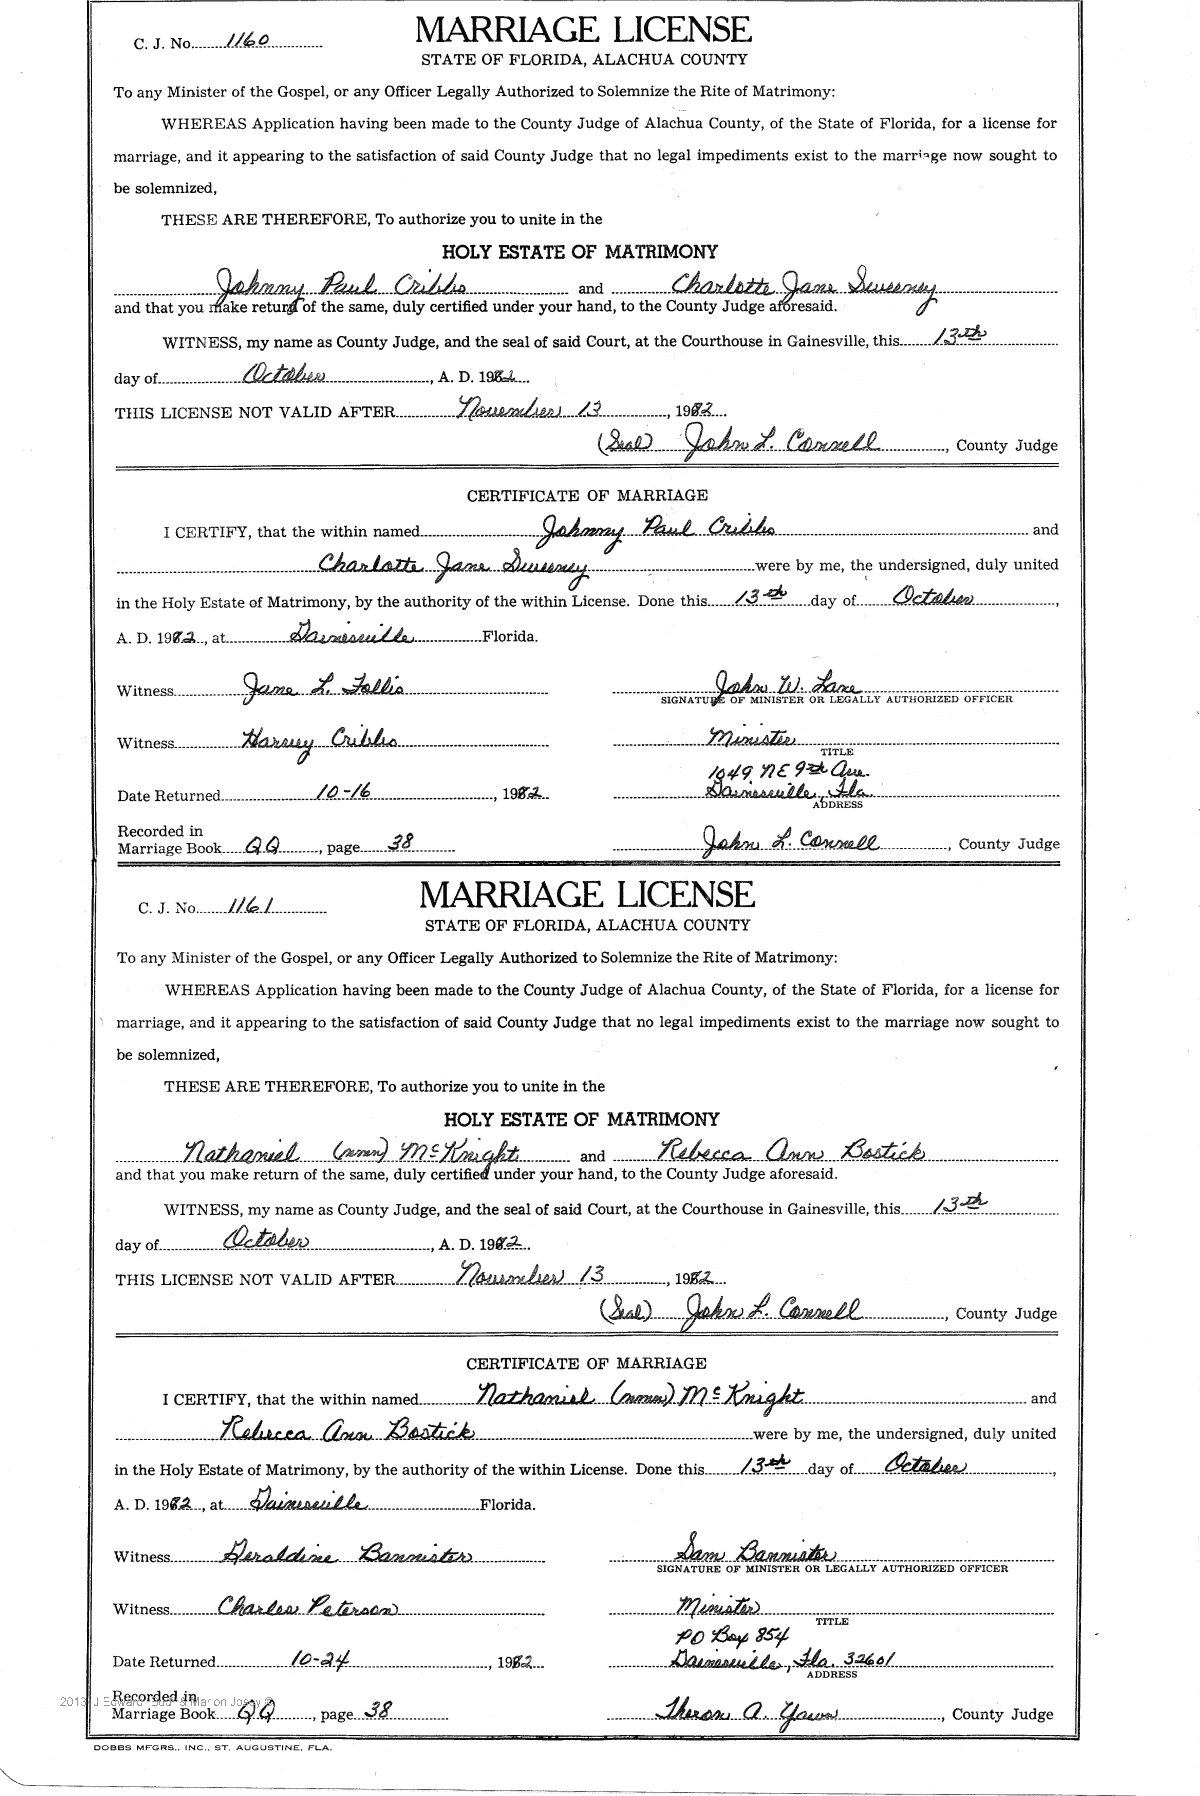 C. J. No. 1160
MARRIAGE LICENSE
STATE OF FLORIDA, ALACHUA COUNTY
To any Minister of the Gospel, or any Officer Legally Authorized to Solemnize the Rite of Matrimony:
WHEREAS Application having been made to the County Judge of Alachua County, of the State of Florida, for a license for
marriage, and it appearing to the satisfaction of said County Judge that no legal impediments exist to the marriage now sought to
be solemnized,
THESE ARE THEREFORE, To authorize you to unite in the
HOLY ESTATE OF MATRIMONY
Johnny Paul Cribbs and Charlotte Jane Sweeney
and that you make return of the same, duly certified under your hand, to the County Judge aforesaid.
WITNESS, my name as County Judge, and the seal of said Court, at the Courthouse in Gainesville, this 13th
day of October, A. D. 1972
THIS LICENSE NOT VALID AFTER November 13, 1972
(Seal) John L. Connell, County Judge
CERTIFICATE OF MARRIAGE
I CERTIFY, that the within named Johnny Paul Cribbs and
Charlotte Jane Sweeney were by me, the undersigned, duly united
in the Holy Estate of Matrimony, by the authority of the within License. Done this 13th day of October,
A. D. 1972, at Gainesville Florida.
Witness Jane L. Follis John W. Lane
SIGNATURE OF MINISTER OR LEGALLY AUTHORIZED OFFICER
Witness Harvey Cribbs Minister
TITLE
1049 NE 9th Ave.
Date Returned 10-16, 1972 Gainesville, Fla.
ADDRESS
Recorded in
Marriage Book QQ, page 38 John L. Connell, County Judge
C. J. No. 1161
MARRIAGE LICENSE
STATE OF FLORIDA, ALACHUA COUNTY
To any Minister of the Gospel, or any Officer Legally Authorized to Solemnize the Rite of Matrimony:
WHEREAS Application having been made to the County Judge of Alachua County, of the State of Florida, for a license for
marriage, and it appearing to the satisfaction of said County Judge that no legal impediments exist to the marriage now sought to
be solemnized,
THESE ARE THEREFORE, To authorize you to unite in the
HOLY ESTATE OF MATRIMONY
Nathaniel (nmn) McKnight and Rebecca Ann Bostick
and that you make return of the same, duly certified under your hand, to the County Judge aforesaid.
WITNESS, my name as County Judge, and the seal of said Court, at the Courthouse in Gainesville, this 13th
day of October, A. D. 1972
THIS LICENSE NOT VALID AFTER November 13, 1972
(Seal) John L. Connell, County Judge
CERTIFICATE OF MARRIAGE
I CERTIFY, that the within named Nathaniel (nmn) McKnight and
Rebecca Ann Bostick were by me, the undersigned, duly united
in the Holy Estate of Matrimony, by the authority of the within License. Done this 13th day of October,
A. D. 1972, at Gainesville Florida.
Witness Geraldine Bannister Sam Bannister
SIGNATURE OF MINISTER OR LEGALLY AUTHORIZED OFFICER
Witness Charles Peterson Minister
TITLE
PO Box 854
Date Returned 10-24, 1972 Gainesville, Fla. 32601
ADDRESS
Recorded in
Marriage Book QQ, page 38 Theron A. Yawn, County Judge
DOBBS MFGRS., INC., ST. AUGUSTINE, FLA.